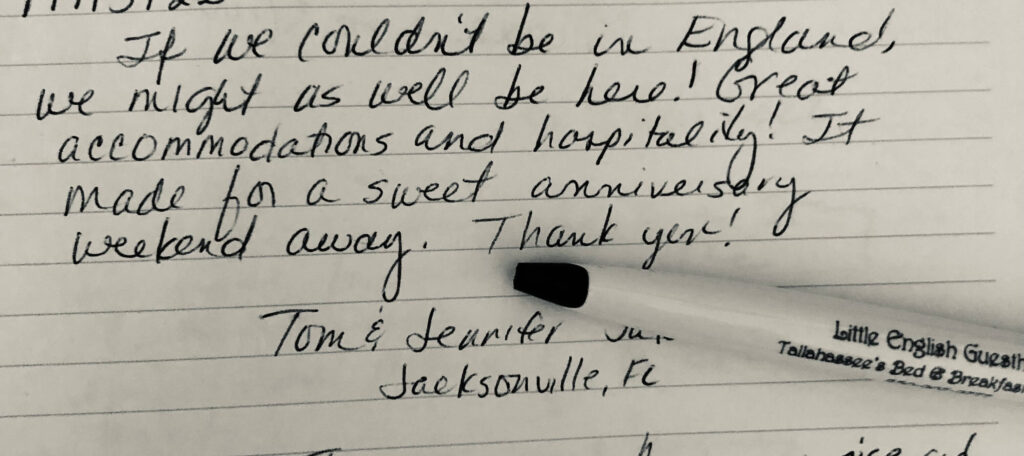 If we couldn't be in England,
we might as well be here! Great
accommodations and hospitality! It
made for a sweet anniversary
weekend away. Thank you!
Tom & Jennifer
Jacksonville, FL
Little English
Tallahassee's Bed & Breakfas